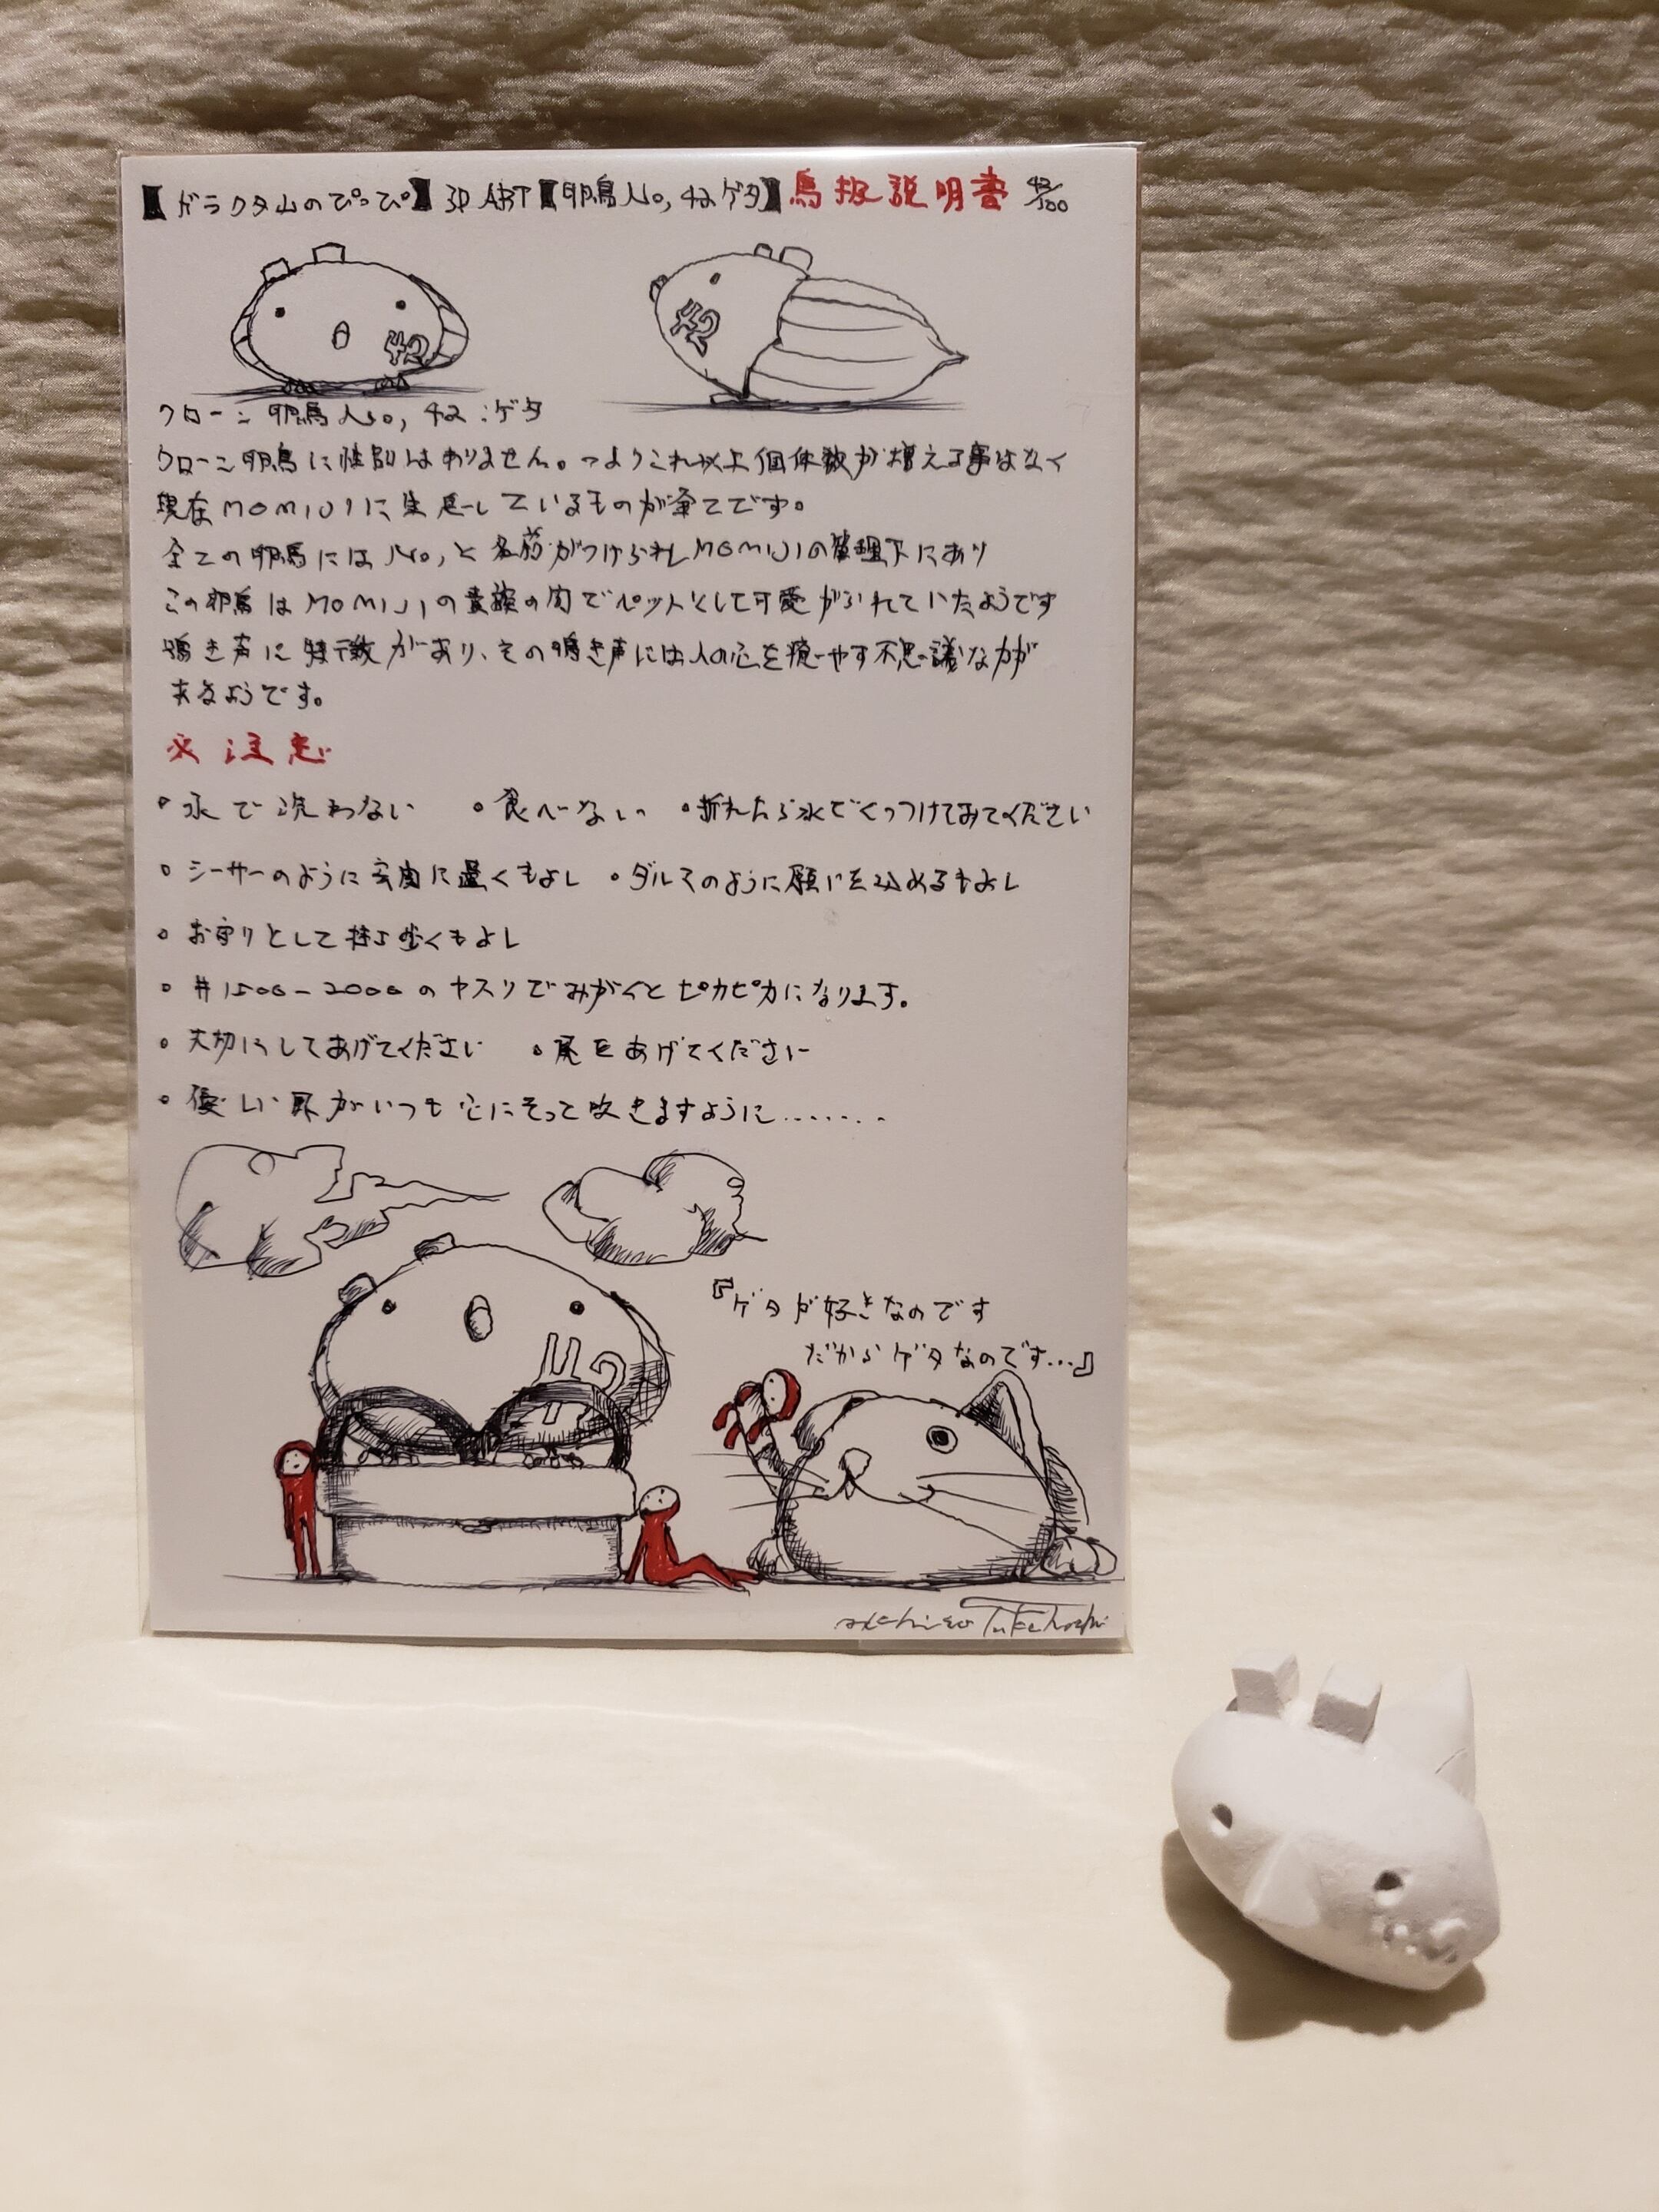 【ドラクタムのぴっぴ】3D ART【卵鳥No, 42 ゲタ】鳥扱説明書 42/100
42
42
クローン卵鳥No, 42 : ゲタ
クローン卵鳥に性別はありません。つまりこれ以上個体数が増える事はなく
現在MOMIJIに生息しているものが全てです。
全ての卵鳥にはNo, と名前がつけられMOMIJIの管理下にあり
この卵鳥はMOMIJIの貴族の間でペットとして可愛がられていたようです
鳴き声に特徴があり、その鳴き声には人の心を癒やす不思議な力が
あるようです。
※注意
・水で洗わない ・食べない ・折れたら水でくっつけてみてください
・シーサーのように玄関に置くもよし ・ダルマのように願いを込めるもよし
・お守りとして持ち歩くもよし
・#1500-2000のヤスリでみがくとピカピカになります。
・大切にしてあげてください ・尾をあげてください
・優しい風がいつも心にそっと吹きますように.......
『ゲタが好きなのです
だからゲタなのです...』
42